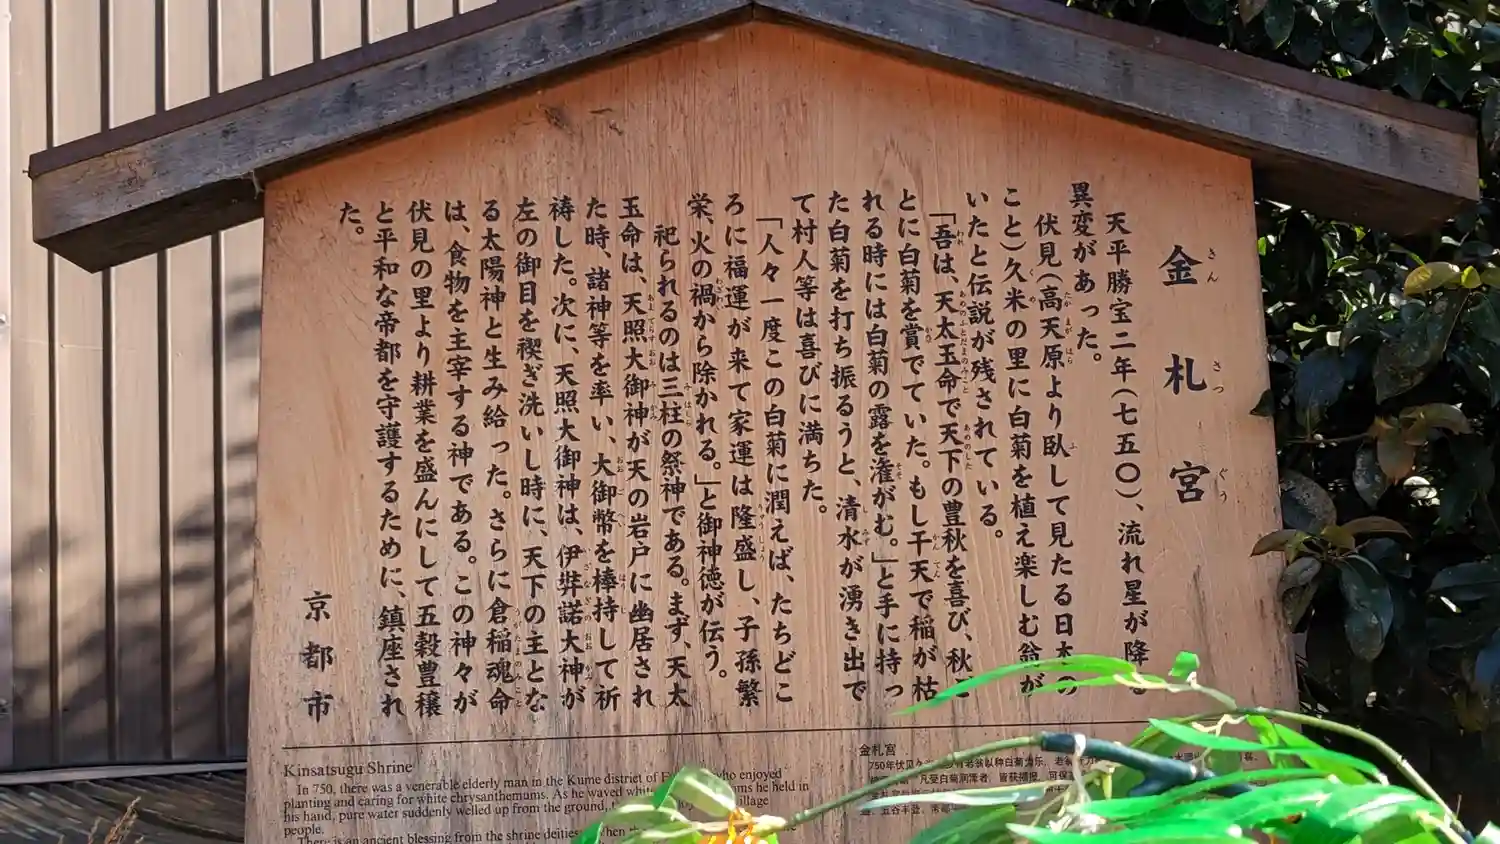 金札宮
きんさつぐう
天平勝宝二年(七五〇)、流れ星が降る
異変があった。
伏見(高天原より臥して見たる日本の
こと)久米の里に白菊を植え楽しむ翁が
いたと伝説が残されている。
「吾は、天太玉命で天下の豊秋を喜び、秋ご
とに白菊を賞でていた。もし干天で稲が枯
れる時には白菊の露を潅がむ。」と手に持っ
た白菊を打ち振るうと、清水が湧き出で
て村人等は喜びに満ちた。
「人々一度この白菊に潤えば、たちどこ
ろに福運が来て家運は隆盛し、子孫繁
栄、火の禍から除かれる。」と御神徳が伝う。
祀られるのは三柱の祭神である。まず、天太
玉命は、天照大御神が天の岩戸に幽居され
た時、諸神等を率い、大御幣を棒持して祈
祷した。次に、天照大御神は、伊弉諾大神が
左の御目を禊ぎ洗いし時に、天下の主とな
る太陽神と生み給った。さらに倉稲魂命
は、食物を主宰する神である。この神々が
伏見の里より耕業を盛んにして五穀豊穣
と平和な帝都を守護するために、鎮座され
た。
京都市
Kinsatsugu Shrine
In 750, there was a venerable elderly man in the Kume district of who enjoyed
planting and caring for white chrysanthemums. As he waved he held in
his hand, pure water suddenly welled up from the ground, village
people.
There is an ancient blessing from the shrine deities
金札宮